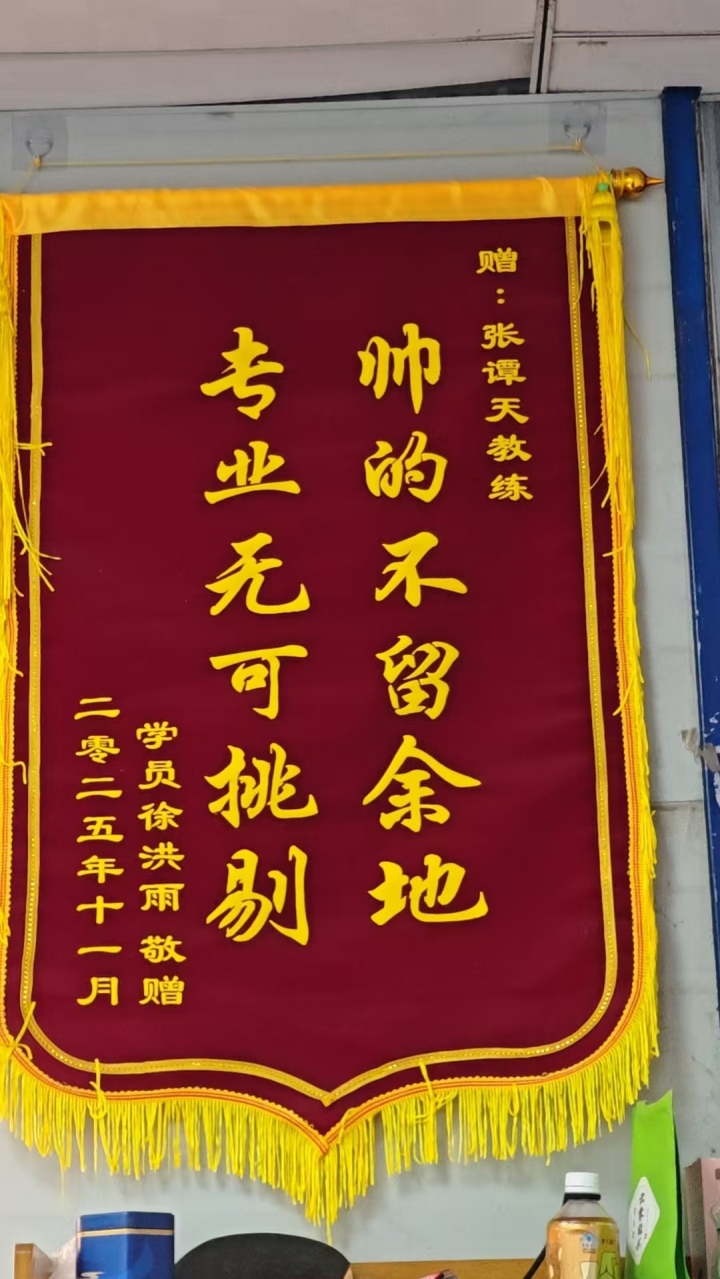 赠：张谭天教练
帅的不留余地
专业无可挑剔
学员徐洪雨 敬赠
二零二五年十一月